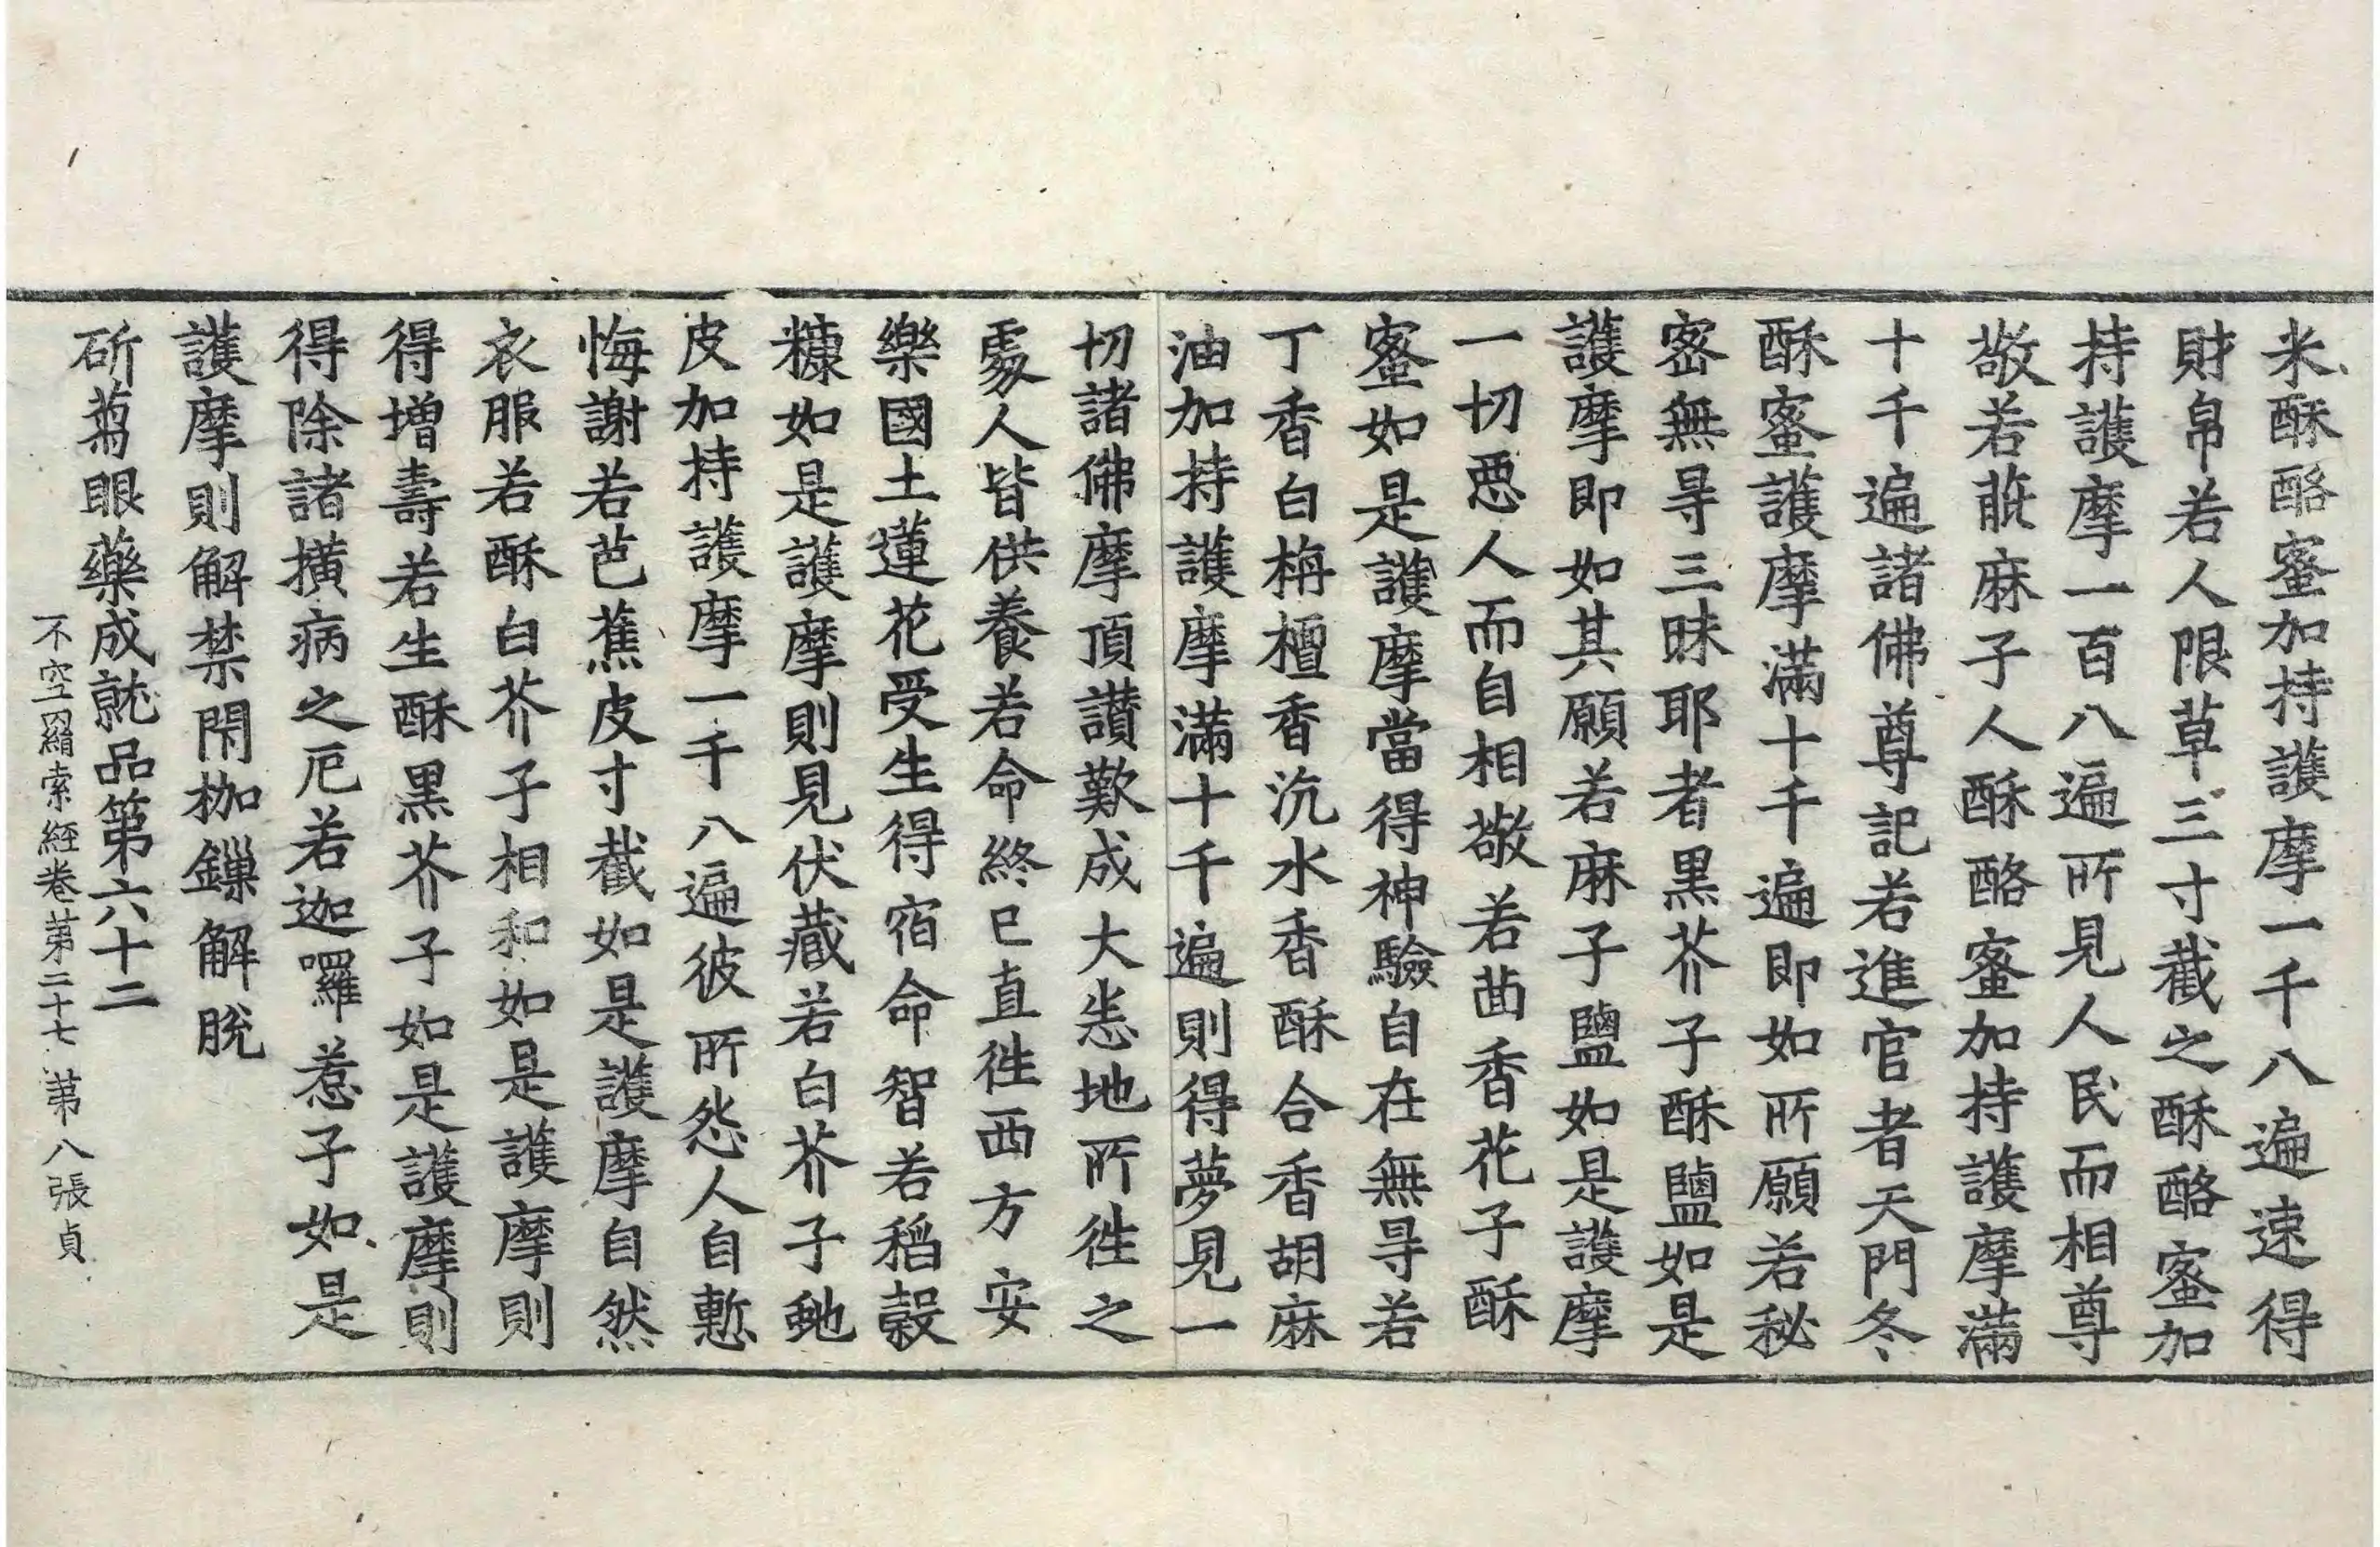 米酥酪蜜加持護摩一千八遍速得
財帛若人限草三寸截之酥酪蜜加
持護摩一百八遍所見人民而相尊
敬若蓖麻子人酥酪蜜加持護摩滿
十千遍諸佛尊記若進官者天門冬
酥蜜護摩滿十千遍即如所願若秘
密無㝵三昧耶者黑芥子酥鹽如是
護摩即如其願若麻子鹽如是護摩
一切惡人而自相敬若茴香花子酥
蜜如是護摩當得神驗自在無㝵若
丁香白栴檀香沉水香酥合香胡麻
油加持護摩滿十千遍則得夢見一
切諸佛摩頂讃歎成大恙地所往之
處人皆供養若命終已直往西方安
樂國土蓮花受生得宿命智若稻穀
糠如是護摩則見伏藏若白芥子虵
皮加持護摩一千八遍彼所怨人自慙
悔謝若芭蕉皮寸截如是護摩自然
衣服若酥白芥子相和如是護摩則
得增壽若生酥黑芥子如是護摩則
得除諸撗病之厄若迦囉惹子如是
護摩則解禁閇枷鏁解脫
斫蒭眼藥成就品第六十二
不空羂索經卷第二十七 第八張貞